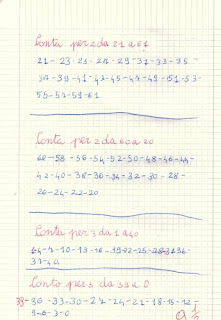 Conta per 2 da 21 a 61
21 - 23 - 25 - 27 - 29 - 31 - 33 - 35 -
37 - 39 - 41 - 43 - 45 - 47 - 49 - 51 - 53 -
55 - 57 - 59 - 61
Conta per 2 da 60 a 20
60 - 58 - 56 - 54 - 52 - 50 - 48 - 46 - 44 -
42 - 40 - 38 - 36 - 34 - 32 - 30 - 28 -
26 - 24 - 22 - 20
Conta per 3 da 1 a 40
4 - 7 - 10 - 13 - 16 - 19 - 22 - 25 - 28 - 31 - 34 -
37 - 40
Conto per 3 da 39 a 0
39 - 36 - 33 - 30 - 27 - 24 - 21 - 18 - 15 - 12 -
9 - 6 - 3 - 0
9 1/2